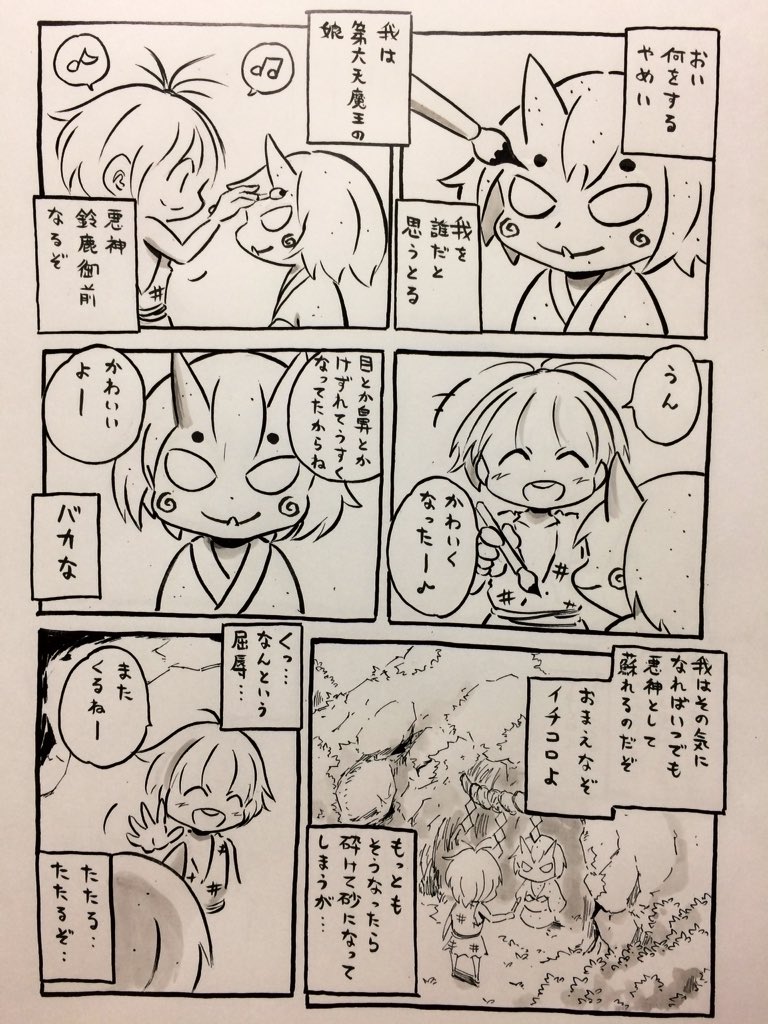 おい
何をする
やめい
我を
誰だと
思うとる
我は
第六天魔王の
娘
悪神
鈴鹿御前
なるぞ
うん
かわいく
なったー♪
目とか鼻とか
けずれてうすく
なってたからね
かわいい
よー
バカな
我はその気に
なればいつでも
悪神として
蘇れるのだぞ
おまえなぞ
イチコロよ
もっとも
そうなったら
砕けて砂になって
しまうが…
くっ…
なんという
屈辱…
また
くるねー
たたる…
たたるぞ…